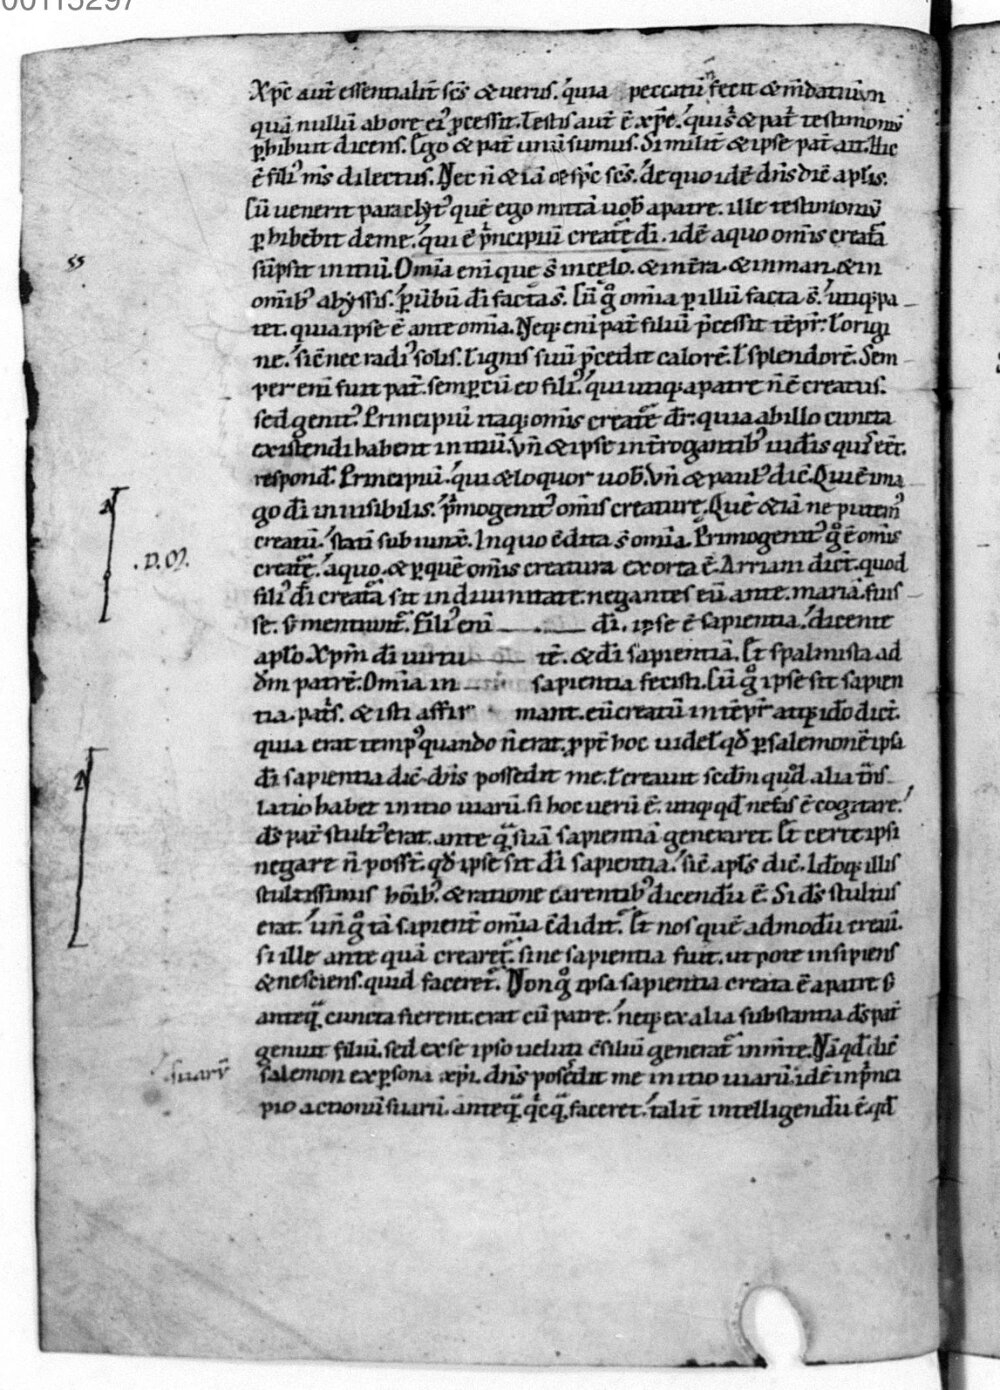 00115297
Xp̄c aut̄ essentialit̄ sc̄s & uerus. quia peccatū n̄ fecit & m̄datiuū n
quā nullū ab ore ei᾽ p̄cessit. Testis aut̄ ē xp̄c. quis & pat̄ testimoniū
p̄hibuit dicens. Ego & pat̄ unū sumus. Similit̄ & ipse pat̄ ait. Hic
ē fili᾽ m̄s dilectus. Nec n̄ & iā & sp̄c sc̄s. de quo idē dn̄s dic̄ apl̄is.
Cū uenerit paraclyt᾽ quē ego mittā uob̄ a patre. ille testimoniū
p̄hibebit de me. qui ē p̄ncipiū creatę dī. idē a quo om̄is creat̄a
sūpsit initiū. Om̄ia eni que s̄ in celo. & in t̄ra. & in mari. & in
omib᾽ abyssis. p̄ ūbū dī facta s̄. Cū g̊ om̄ia p̄ illū facta s̄. utiq; pa
tet. quia ipse ē ante om̄ia. Neq; eni pat̄ filiū p̄cessit tēpr̄. t̄ origi
ne. sic̄ nec radi᾽ solis. t̄ ignis suū p̄cedit calorē. t̄ splendorē. Sem
per eni fuit pat̄. semp̄ cū eo fili᾽. qui utiq; a patre n̄ ē creatus.
sed genit᾽. Principiū itaq; om̄is creatę dr̄. quia ab illo cuncta
existendi habent initiū. Vn̄ & ipse int̄rogantib᾽ iudeis quis eēt.
respond̄. Principiū. qui & loquor uob̄. Vn̄ & paul᾽ dic̄. Qui ē ima
go dī inuisibilis. p̄mogenit᾽ om̄is creature. Quē & iā ne putem᾽
creatū. statī subiunx̄. In quo ēdita s̄ om̄ia. Primogenit᾽ g̊ ē om̄is
creatę. a quo. & p̄ quē om̄is creatura exorta ē. Arriani dic̄t. quod
fili᾽ dī creat̄a sit in diuinitate. negantes eū ante mariā fuis
se. s̄ mentiunt̄. Fili᾽ eni dī. ipse ē sapientia. dicente
apl̄o. Xpm̄ dī uirtu tē. & dī sapientiā. Et spalmista ad
dm̄ patrē. Om̄ia in sapientia fecisti. Cū g̊ ipse sit sapien
tia. pat̄s. & isti affir mant. eū creatū in tēpr̄ atq; ido dic̄t.
quia erat temp᾽ quando n̄ erat. p̄pt̄ hoc uidel̄ qd̄ p̄ salemonē ipsa
dī sapientia dic̄. dn̄s possedit me. t̄ creauit sedm̄ quod alia t̄ns
latio habet initio uiarū. si hoc uerū ē. utiq; qd̄ nefas ē cogitare.
ds̄ pat̄ stult᾽ erat. ante q̄ suā sapientiā generaret. Et certe ipsi
negare n̄ poss̄t. qd̄ ipse sit dī sapientia. sic̄ apl̄s dic̄. Idoq; illis
stultissimis hōib᾽. & ratione carentib᾽ dicendū ē. Si ds̄ stultus
erat. un̄ g̊ tā sapient̄ om̄ia ēdidit. Et nos quē admodū creaū.
si ille ante quā crearet. sine sapientia fuit. ut pote insipiens
& nesciens. quid faceret. Non g̊ ipsa sapientia creata ē a patre. s̄
anteq̄ cuncta fierent. erat cū patre. neq; ex alia substantia ds̄ pat̄
genuit filiū. sed ex se ipso ueluti ēsiliū generat̄ in m̄te. Nā qd̄ dic̄
salemon ex p̄sona xpi. dn̄s possedit me initio uiarū. idē in p̄nci
pio actionū suarū. anteq̄ q̄cq̄ faceret. talit̄ intelligendū ē. qd̄
ss
.D.M.
suarū